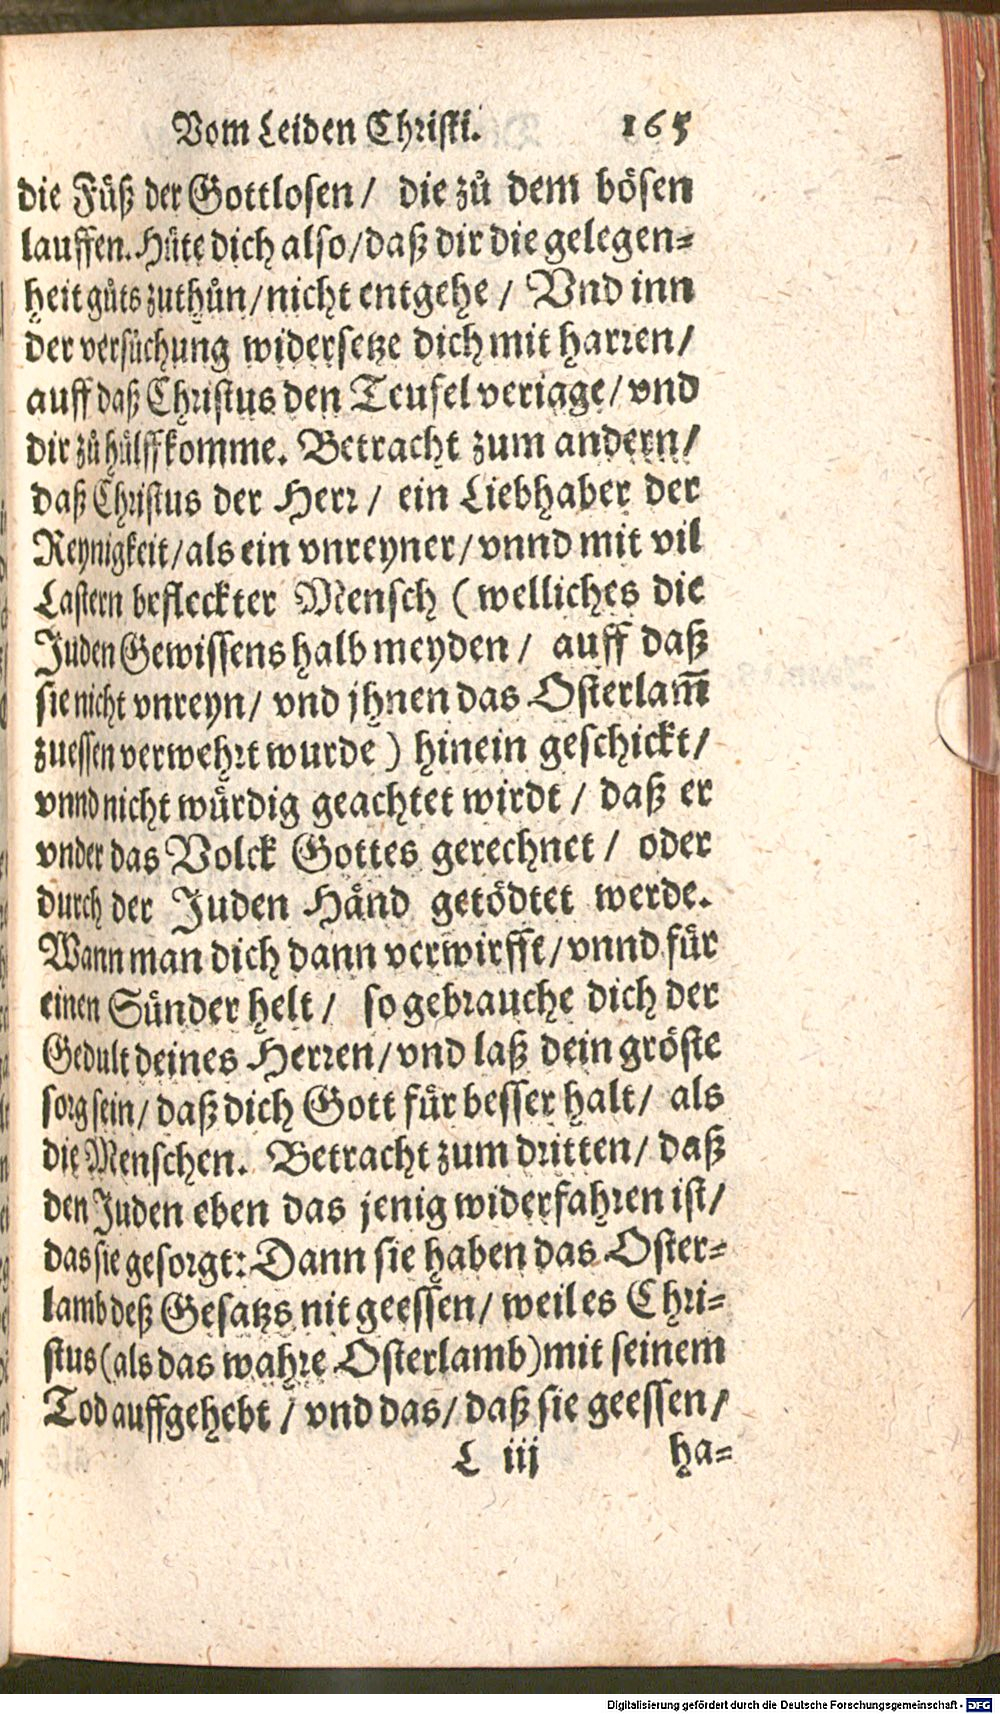 Vom Leiden Christi. 165
die Füß der Gottlosen / die zů dem bösen
lauffen. Hüte dich also / daß dir die gelegen⸗
heit gůts zuthůn / nicht entgehe / Vnd inn
der versůchung widersetze dich mit harren /
auff daß Christus den Teufel veriage / vnd
dir zů hülff komme. Betracht zum andern /
daß Christus der Herr / ein Liebhaber der
Reynigkeit / als ein vnreyner / vnnd mit vil
Lastern befleckter Mensch ( welliches die
Juden Gewissens halb meyden / auff daß
sie nicht vnreyn / vnd jhnen das Osterlam̄
zuessen verwehrt wurde ) hinein geschickt /
vnnd nicht würdig geachtet wirdt / daß er
vnder das Volck Gottes gerechnet / oder
durch der Juden Händ getödtet werde.
Wann man dich dann verwirfft / vnnd für
einen Sünder helt / so gebrauche dich der
Gedult deines Herren / vnd laß dein gröste
sorg sein / daß dich Gott für besser halt / als
die Menschen. Betracht zum dritten / daß
den Juden eben das jenig widerfahren ist /
das sie gesorgt: Dann sie haben das Oster⸗
lamb deß Gesatzs nit geessen / weil es Chri⸗
stus (als das wahre Osterlamb) mit seinem
Tod auffgehebt / vnd das / daß sie geessen /
L iij ha⸗
Digitalisierung gefördert durch die Deutsche Forschungsgemeinschaft - DFG